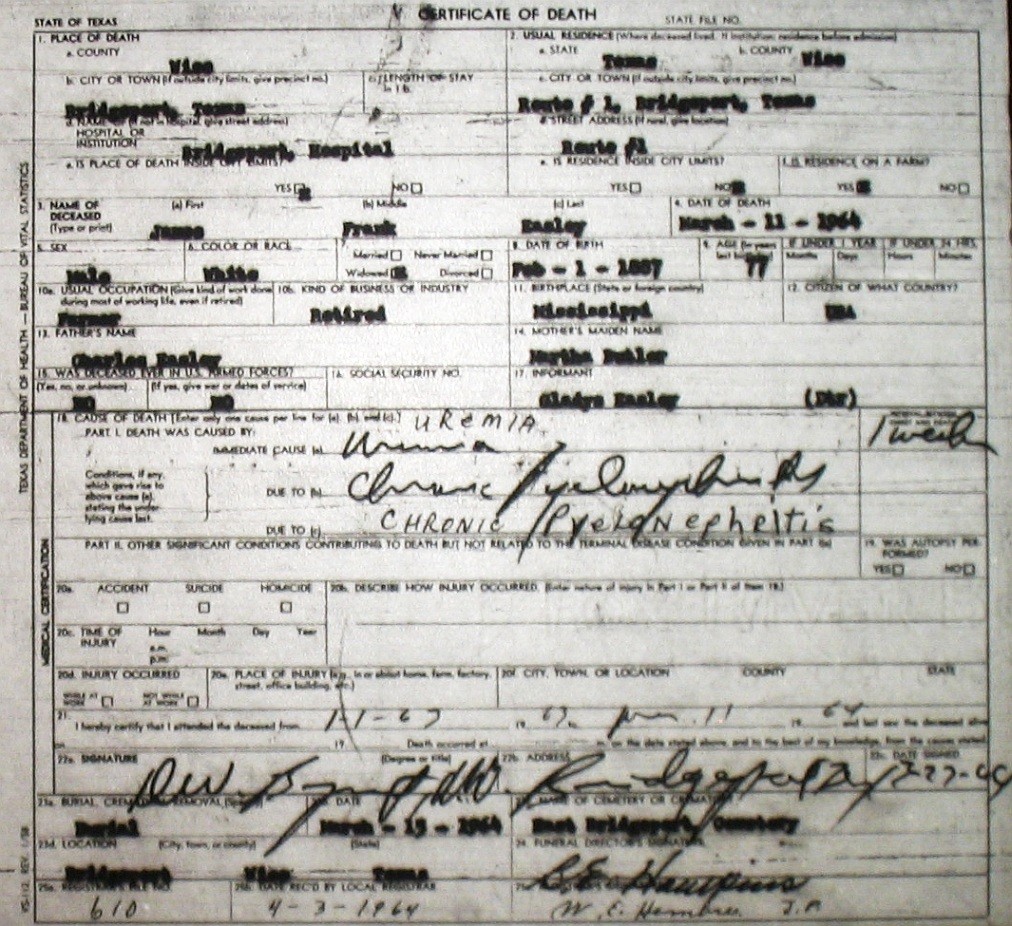 CERTIFICATE OF DEATH
STATE OF TEXAS
STATE FILE NO.
1. PLACE OF DEATH
2. USUAL RESIDENCE (Where deceased lived. If institution: residence before admission)
a. COUNTY
Wise
a. STATE
Texas
b. COUNTY
Wise
b. CITY OR TOWN (If outside city limits, give precinct no.)
Bridgeport, Texas
c. LENGTH OF STAY in 1b.
c. CITY OR TOWN (If outside city limits, give precinct no.)
Route # 1, Bridgeport, Texas
d. NAME OF (If not in hospital, give street address)
HOSPITAL OR
INSTITUTION
Bridgeport, Hospital
d. STREET ADDRESS (If rural, give location)
Route #1
e. IS PLACE OF DEATH INSIDE CITY LIMITS?
YES NO
e. IS RESIDENCE INSIDE CITY LIMITS?
YES NO
f. IS RESIDENCE ON A FARM?
YES NO
3. NAME OF
DECEASED
(Type or print)
(a) First
James
(b) Middle
Frank
(c) Last
Easley
4. DATE OF DEATH
March - 11 - 1964
5. SEX
Male
6. COLOR OR RACE
White
7.
Married Never Married
Widowed Divorced
8. DATE OF BIRTH
Feb - 1 - 1887
9. AGE (In years
last birthday)
77
IF UNDER 1 YEAR
Months Days
IF UNDER 24 HRS.
Hours Minutes
10a. USUAL OCCUPATION (Give kind of work done
during most of working life, even if retired)
Farmer
10b. KIND OF BUSINESS OR INDUSTRY
Retired
11. BIRTHPLACE (State or foreign country)
Mississippi
12. CITIZEN OF WHAT COUNTRY?
USA
13. FATHER'S NAME
Charles Easley
14. MOTHER'S MAIDEN NAME
Martha
15. WAS DECEASED EVER IN U.S. ARMED FORCES?
(Yes, no, or unknown) (If yes, give war or dates of service)
NO NO
16. SOCIAL SECURITY NO.
17. INFORMANT
Gladys Easley (Dtr)
18. CAUSE OF DEATH [Enter only one cause per line for (a), (b), and (c).]
PART I. DEATH WAS CAUSED BY:
UREMIA
IMMEDIATE CAUSE (a)
Uremia
INTERVAL BETWEEN
ONSET AND DEATH
1 week
Conditions, if any,
which gave rise to
above cause (a),
stating the under-
lying cause last.
DUE TO (b)
Chronic Pyelonephritis
DUE TO (c)
CHRONIC Pyelonephritis
PART II. OTHER SIGNIFICANT CONDITIONS CONTRIBUTING TO DEATH BUT NOT RELATED TO THE TERMINAL DISEASE CONDITION GIVEN IN PART I(a)
19. WAS AUTOPSY PER-
FORMED?
YES NO
20a. ACCIDENT SUICIDE HOMICIDE
20b. DESCRIBE HOW INJURY OCCURRED. (Enter nature of injury in Part I or Part II of item 18.)
20c. TIME OF
INJURY
Hour Month Day Year
a.m.
p.m.
20d. INJURY OCCURRED
WHILE AT
WORK
NOT WHILE
AT WORK
20e. PLACE OF INJURY (e.g., in or about home, farm, factory,
street, office building, etc.)
20f. CITY, TOWN, OR LOCATION COUNTY STATE
21.
I hereby certify that I attended the deceased from 1-1-63 19 63 to 11 19 64 and last saw the deceased alive
on 19 Death occurred at m. on the date stated above, and to the best of my knowledge, from the causes stated.
22a. SIGNATURE (Degree or title)
22b. ADDRESS
22c. DATE SIGNED
23a. BURIAL, CREMATION, REMOVAL (Specify)
Burial
23b. DATE
March - 13 - 1964
23c. NAME OF CEMETERY OR CREMATORY
East Bridgeport, Cemetery
23d. LOCATION (City, town, or county) (State)
Bridgeport Wise Texas
24. FUNERAL DIRECTOR'S SIGNATURE
25a. REGISTRAR'S FILE NO.
610
25b. DATE REC'D BY LOCAL REGISTRAR
4 - 3 - 1964
TEXAS DEPARTMENT OF HEALTH — BUREAU OF VITAL STATISTICS
MEDICAL CERTIFICATION
VS-112 REV. 1/58